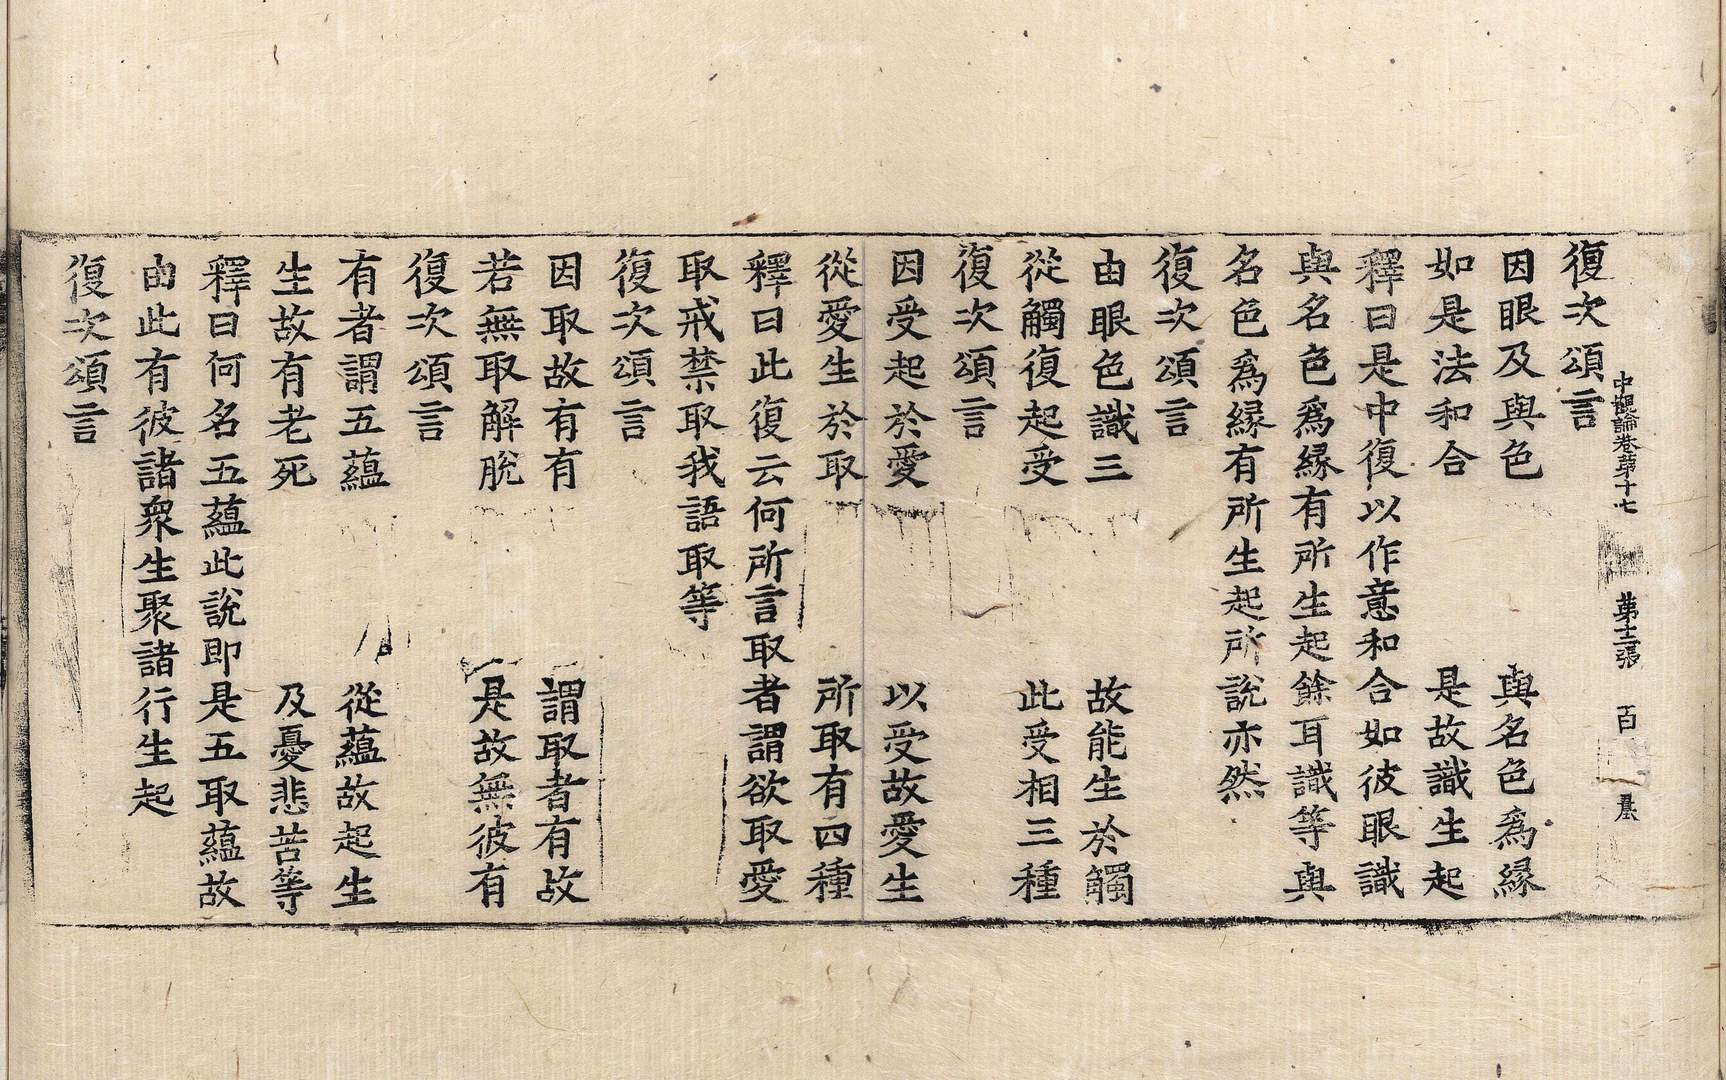 復次頌言
因眼及與色　與名色爲縁
如是法和合　是故識生起
釋曰是中復以作意和合如彼眼識
與名色爲縁有所生起餘耳識等與
名色爲縁有所生起所說亦然
復次頌言
由眼色識三　故能生於觸
從觸復起受　此受相三種
復次頌言
因受起於愛　以受故愛生
從愛生於取　所取有四種
釋曰此復云何所言取者謂欲取愛
取戒禁取我語取等
復次頌言
因取故有有　謂取者有故
若無取解脫　是故無彼有
復次頌言
有者謂五蘊　從蘊故起生
生故有老死　及憂悲苦等
釋曰何名五蘊此說即是五取蘊故
由此有彼諸衆生聚諸行生起
復次頌言
中觀論卷第十七　第十二張